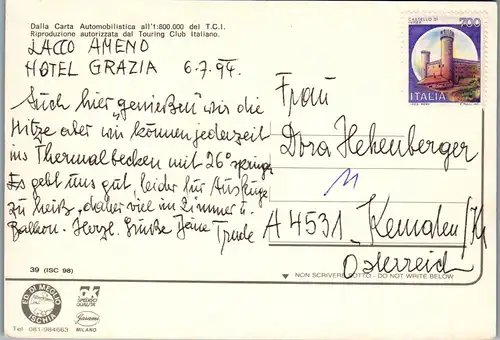 Dalla Carta Automobilistica all'1:800.000 del T.C.I.
Riproduzione autorizzata dal Touring Club Italiano.
LACCO AMENO
HOTEL GRAZIA 6.7.94.
Auch hier "genießen" wir die
Hitze aber wir können jederzeit
ins Thermalbecken mit 26° springen
Es geht uns gut, leider für Ausflüge
zu heiß, daher viel im Zimmer u.
Balkon. Herzl. Grüße Deine Trude
39 (ISC 98)
ED. DI MEGLIO
ISCHIA
Tel 081/984663
MILANO
CASTELLO DI
700
ITALIA
Frau
Dora Hehenberger
11
A 4531 Kematen/Kr
Österreich
NON SCRIVERE SOTTO - DO NOT WRITE BELOW